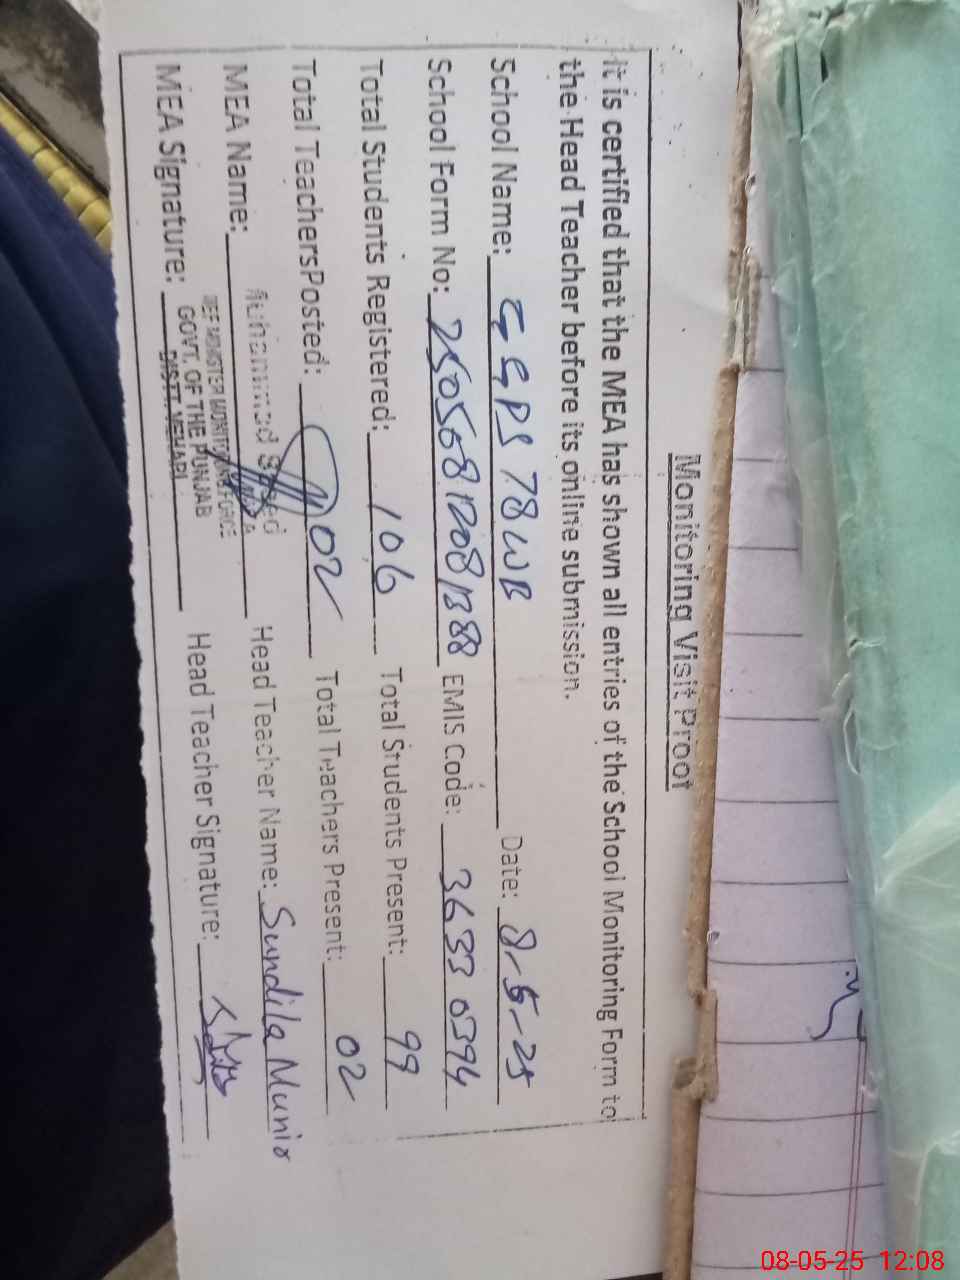 Monitoring Visit Proof
It is certified that the MEA has shown all entries of the School Monitoring Form to
the Head Teacher before its online submission.
School Name: GGPS 78 WB Date: 8-5-25
School Form No: 2505081208 1388 EMIS Code: 3633 0394
Total Students Registered: 106 Total Students Present: 99
Total TeachersPosted: 02 Total Teachers Present: 02
MEA Name: Muhammad Head Teacher Name: Sundila Munir
MEA Signature: Head Teacher Signature:
GOVT. OF THE PUNJAB
DISTT. VEHARI
08-05-25 12:08